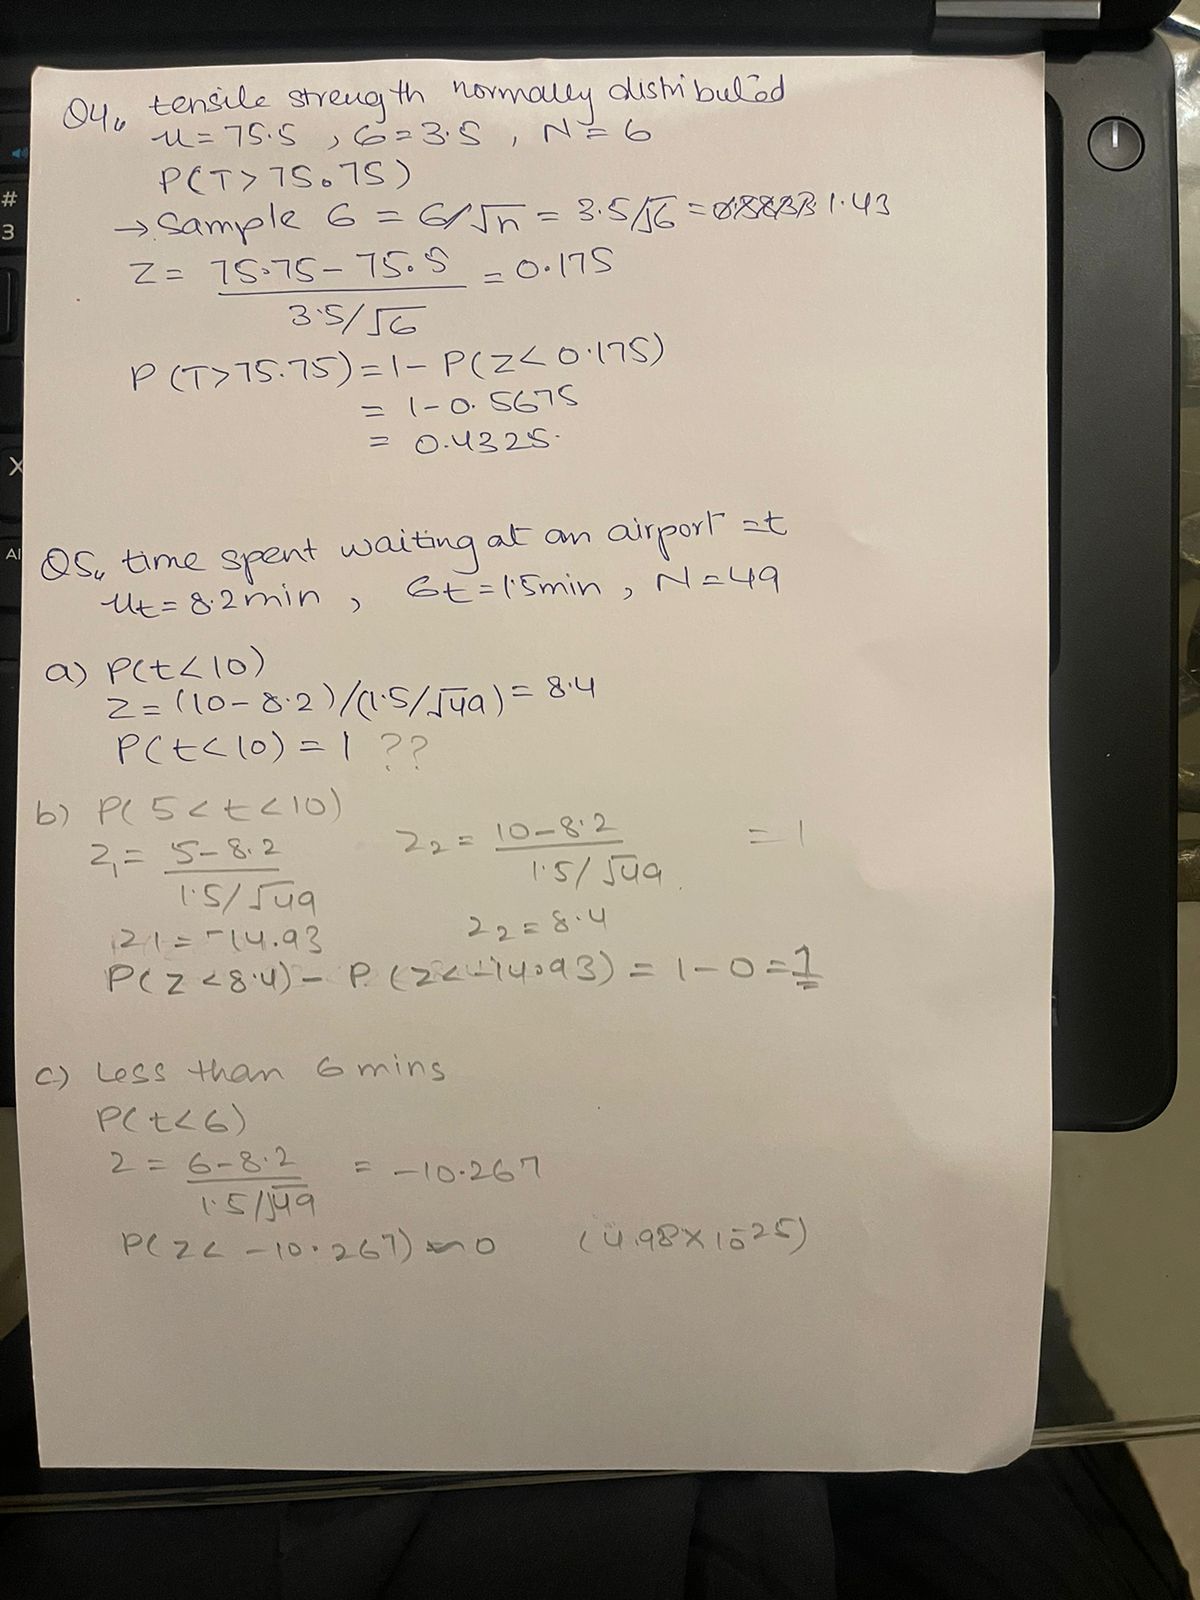 Q4, tensile strength normally distributed
μ = 75.5 , σ = 3.5 , N = 6
P(T > 75.75)
→ Sample σ = σ/√n = 3.5/√6 = 1.43
Z = 75.75 - 75.5 / 3.5/√6 = 0.175
P(T>75.75) = 1 - P(Z < 0.175)
= 1 - 0.5675
= 0.4325.
Q5, time spent waiting at an airport = t
μt = 8.2 min , σt = 1.5 min , N = 49
a) P(t < 10)
Z = (10 - 8.2)/(1.5/√49) = 8.4
P(t < 10) = 1 ??
b) P( 5 < t < 10)
Z₁ = 5 - 8.2 / 1.5/√49 Z₂ = 10 - 8.2 / 1.5/√49 = 1
Z1 = -14.93 Z₂ = 8.4
P(Z < 8.4) - P(Z < -14.93) = 1 - 0 = 1
c) Less than 6 mins
P(t < 6)
Z = 6 - 8.2 / 1.5/√49 = -10.267
P(Z < -10.267) ≈ 0 (4.98 × 10⁻²⁵)
#
3
X